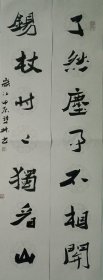 了然塵事不相關
錫杖時時獨看山